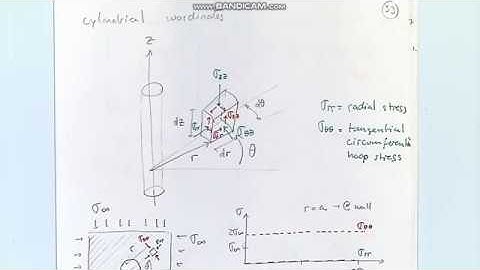 www.BANDICAM.com
cylindrical coordinates
53
z
σzz
dθ
dz
σrr
σθθ
r
dr
θ
σrr = radial stress
σθθ = tangential
circumferential
hoop stress
σ∞
σ∞
r
σ
r=a → @ wall
2σ∞
σθθ
σ∞
σrr